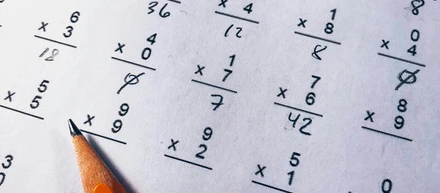 36
× 4
12
1
× 8
8
0
× 4
0
8
6
× 3
18
4
× 0
0
1
× 7
7
7
× 6
42
8
× 9
5
× 5
9
× 9
9
× 2
5
× 1
0
3
0